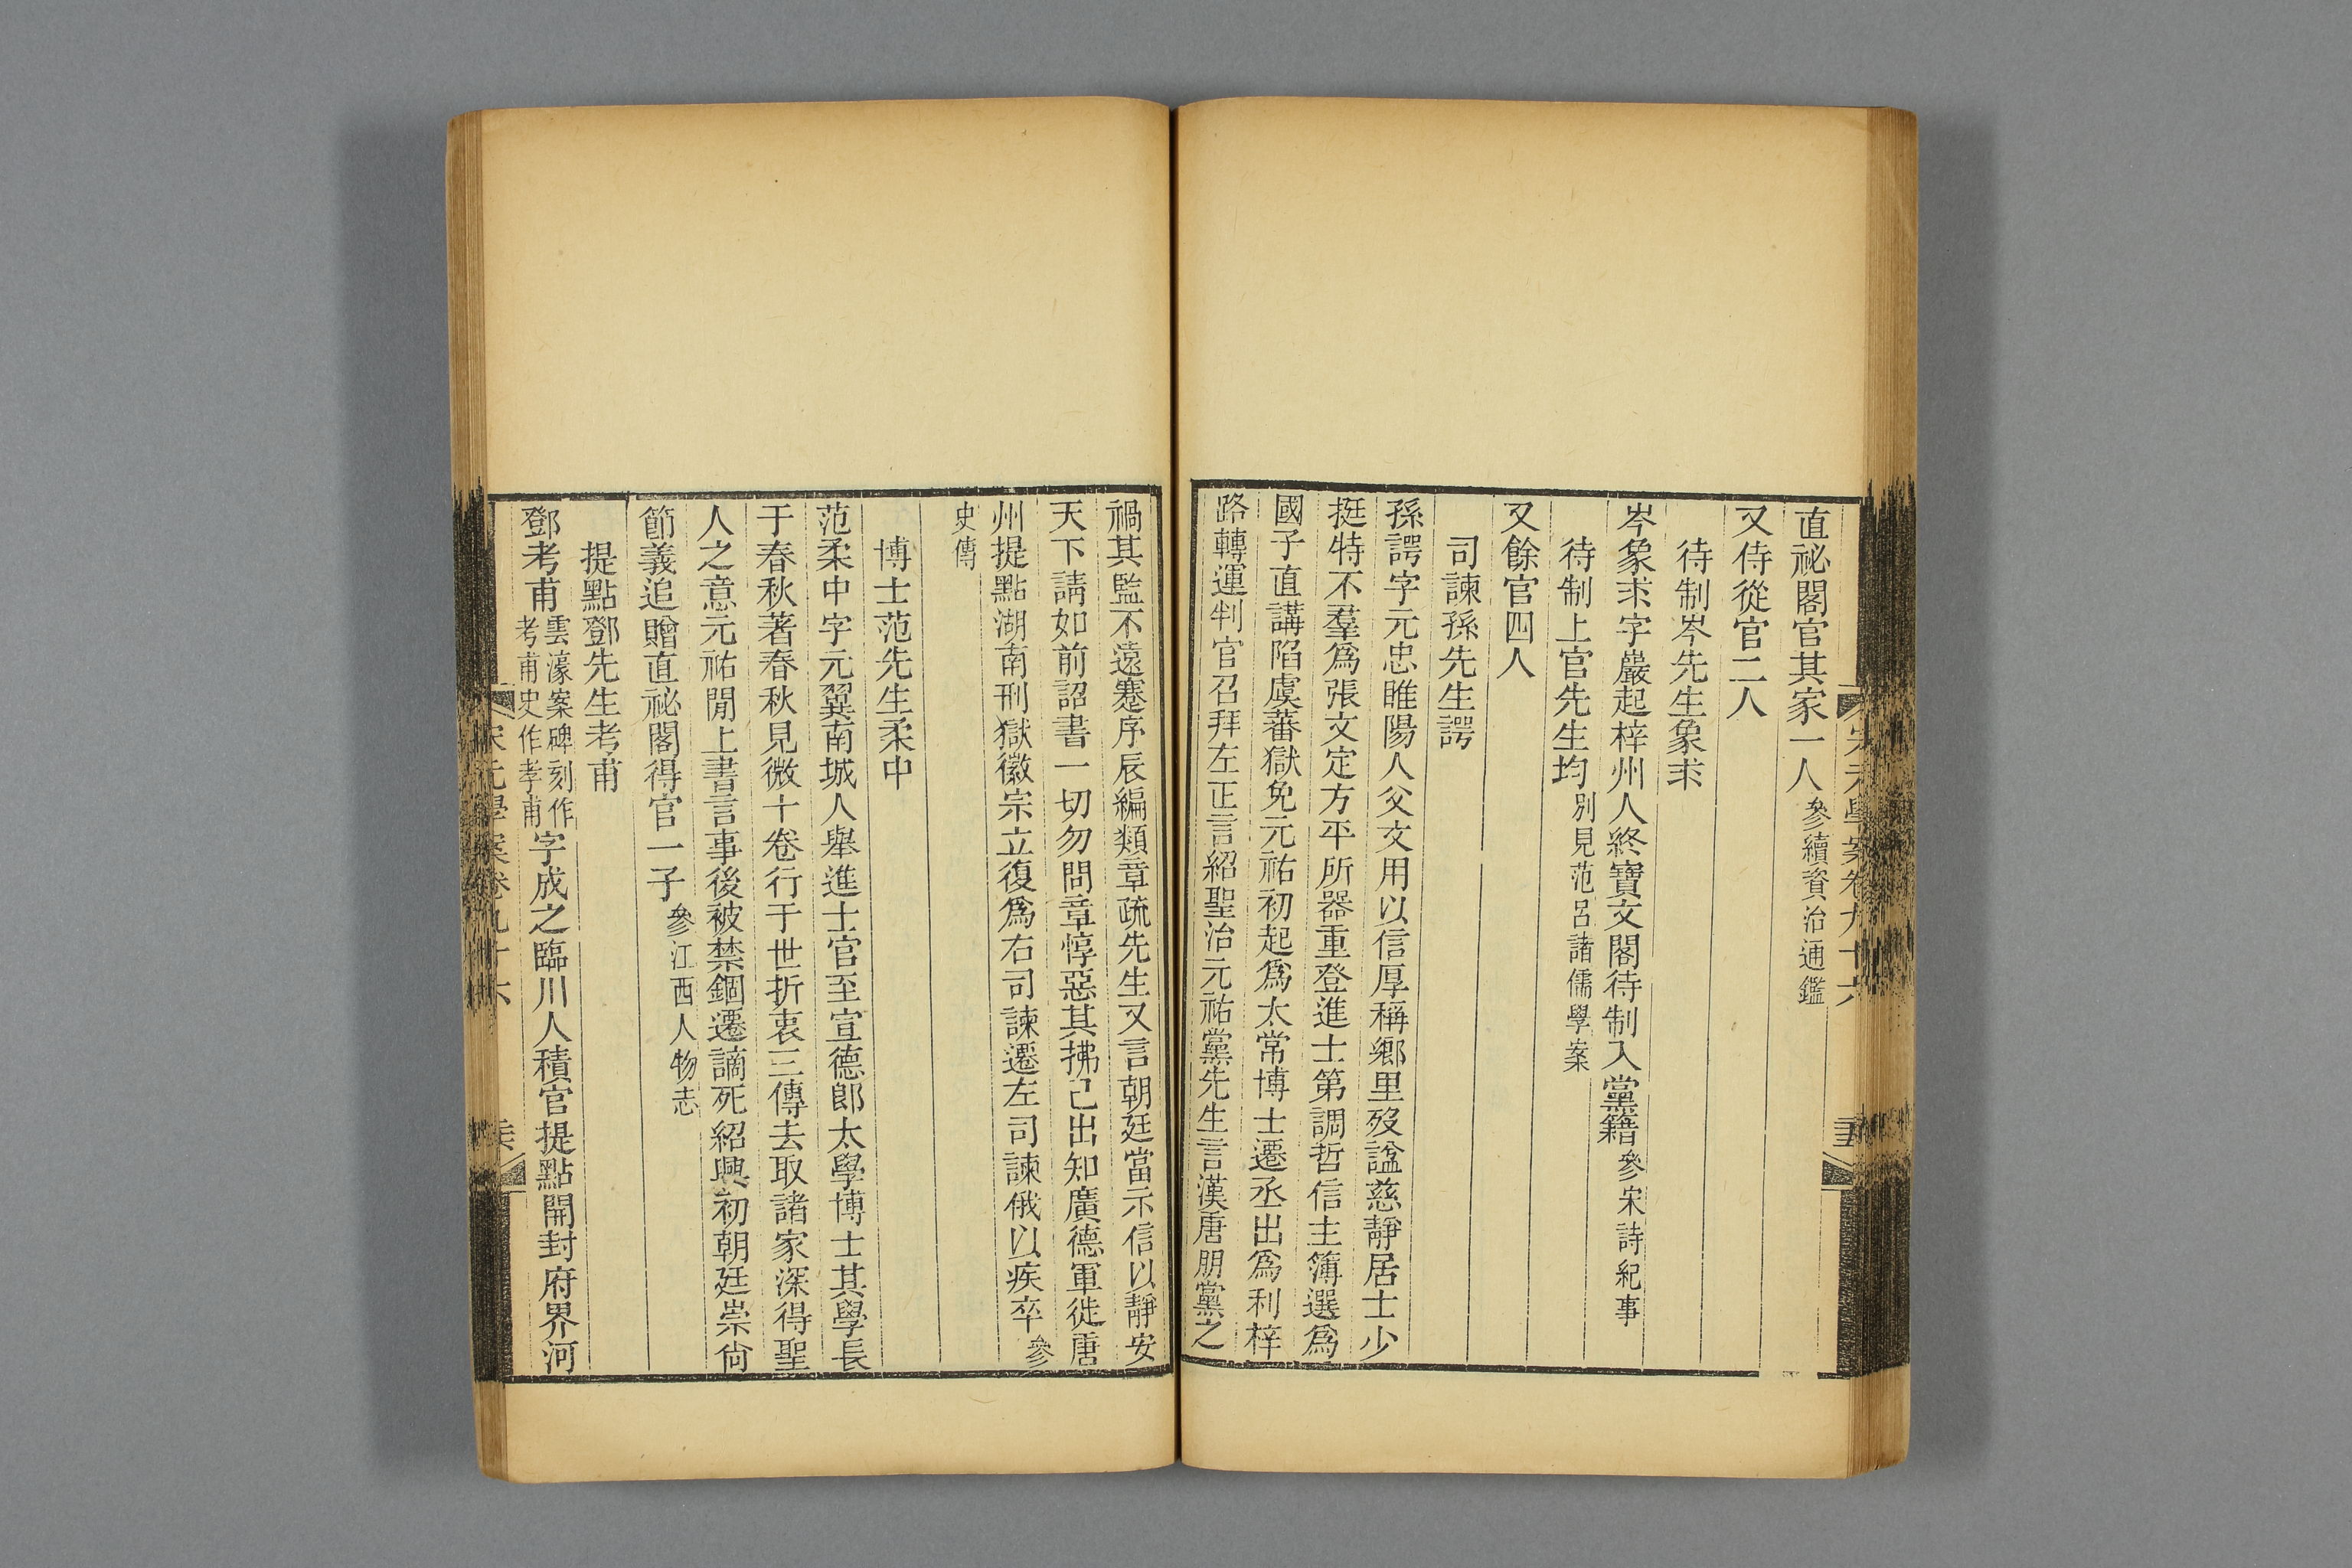 直祕閣官其家一人參續資治通鑑
又侍從官二人
待制岑先生象求
岑象求字巖起梓州人終寶文閣待制入黨籍參宋詩紀事
待制上官先生均別見范呂諸儒學案
又餘官四人
司諫孫先生諤
孫諤字元忠睢陽人父文用以信厚稱鄉里歿諡慈靜居士少
挺特不羣爲張文定方平所器重登進士第調哲信主簿選爲
國子直講陷虞蕃獄免元祐初起爲太常博士遷丞出爲利梓
路轉運判官召拜左正言紹聖治元祐黨先生言漢唐朋黨之
禍其監不遠蹇序辰編類章疏先生又言朝廷當示信以靜安
天下請如前詔書一切勿問章惇惡其拂己出知廣德軍徙唐
州提點湖南刑獄徽宗立復爲右司諫遷左司諫俄以疾卒參
史傳
博士范先生柔中
范柔中字元翼南城人舉進士官至宣德郎太學博士其學長
于春秋著春秋見微十卷行于世折衷三傳去取諸家深得聖
人之意元祐閒上書言事後被禁錮遷謫死紹興初朝廷崇尙
節義追贈直祕閣得官一子參江西人物志
提點鄧先生考甫
鄧考甫雲濠案碑刻作考甫史作孝甫字成之臨川人積官提點開封府界河
宋元學案卷九十六